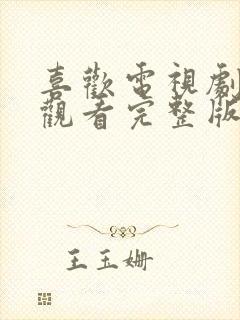 喜歡電視劇
觀看完整版
王玉姍